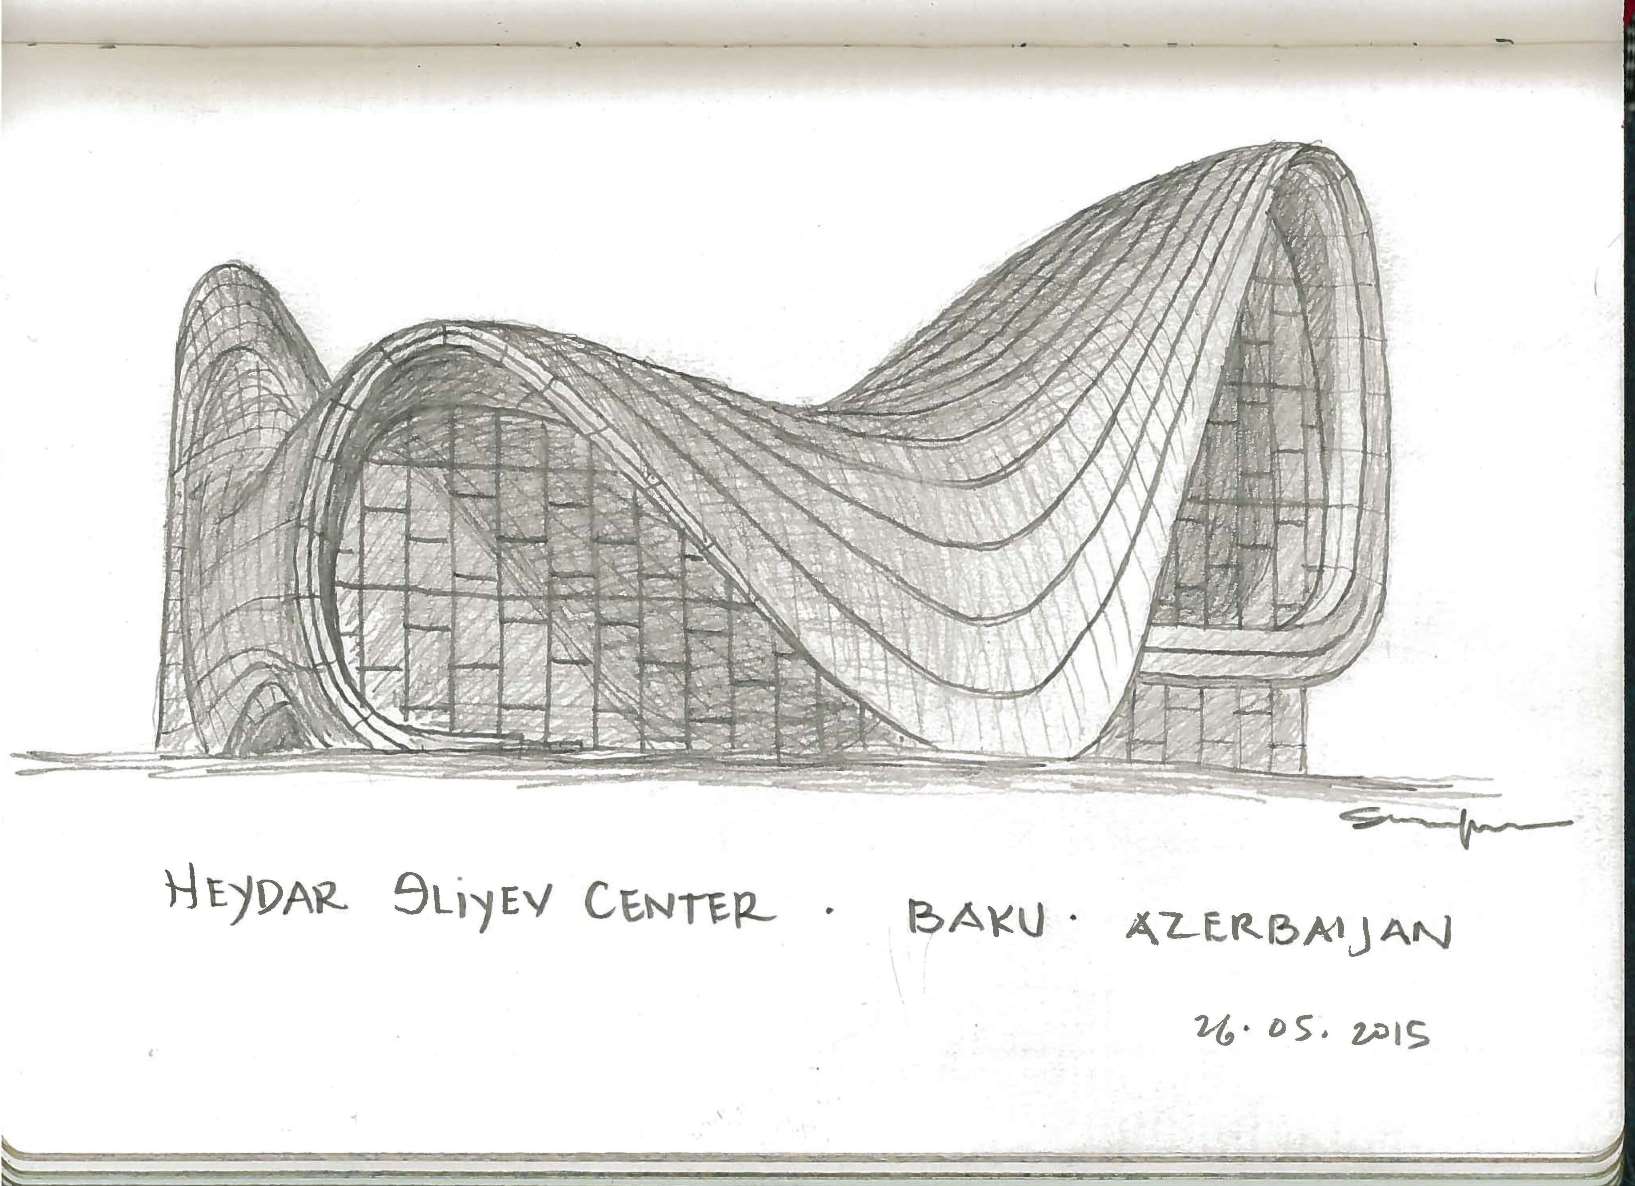 HEYDAR ƏLİYEV CENTER . BAKU . AZERBAIJAN
26.05.2015